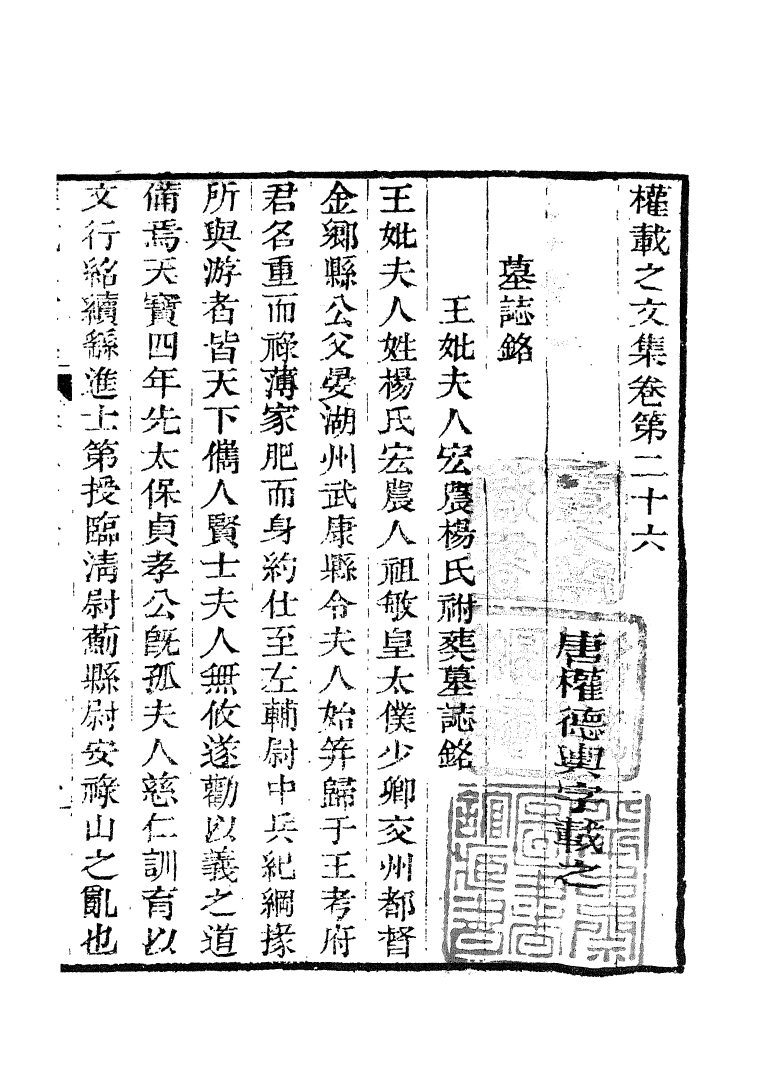 權載之文集卷第二十六
唐權德輿字載之
墓誌銘
王妣夫人宏農楊氏祔葬墓誌銘
王妣夫人姓楊氏宏農人祖敏皇太僕少卿交州都督
金鄉縣公父晏湖州武康縣令夫人始笄歸于王考府
君名重而祿薄家肥而身約仕至左輔尉中兵紀綱掾
所與游者皆天下儁人賢士夫人無攸遂勸以義之道
備焉天寶四年先太保貞孝公旣孤夫人慈仁訓育以
文行紹續繇進士第授臨淸尉薊縣尉安祿山之亂也